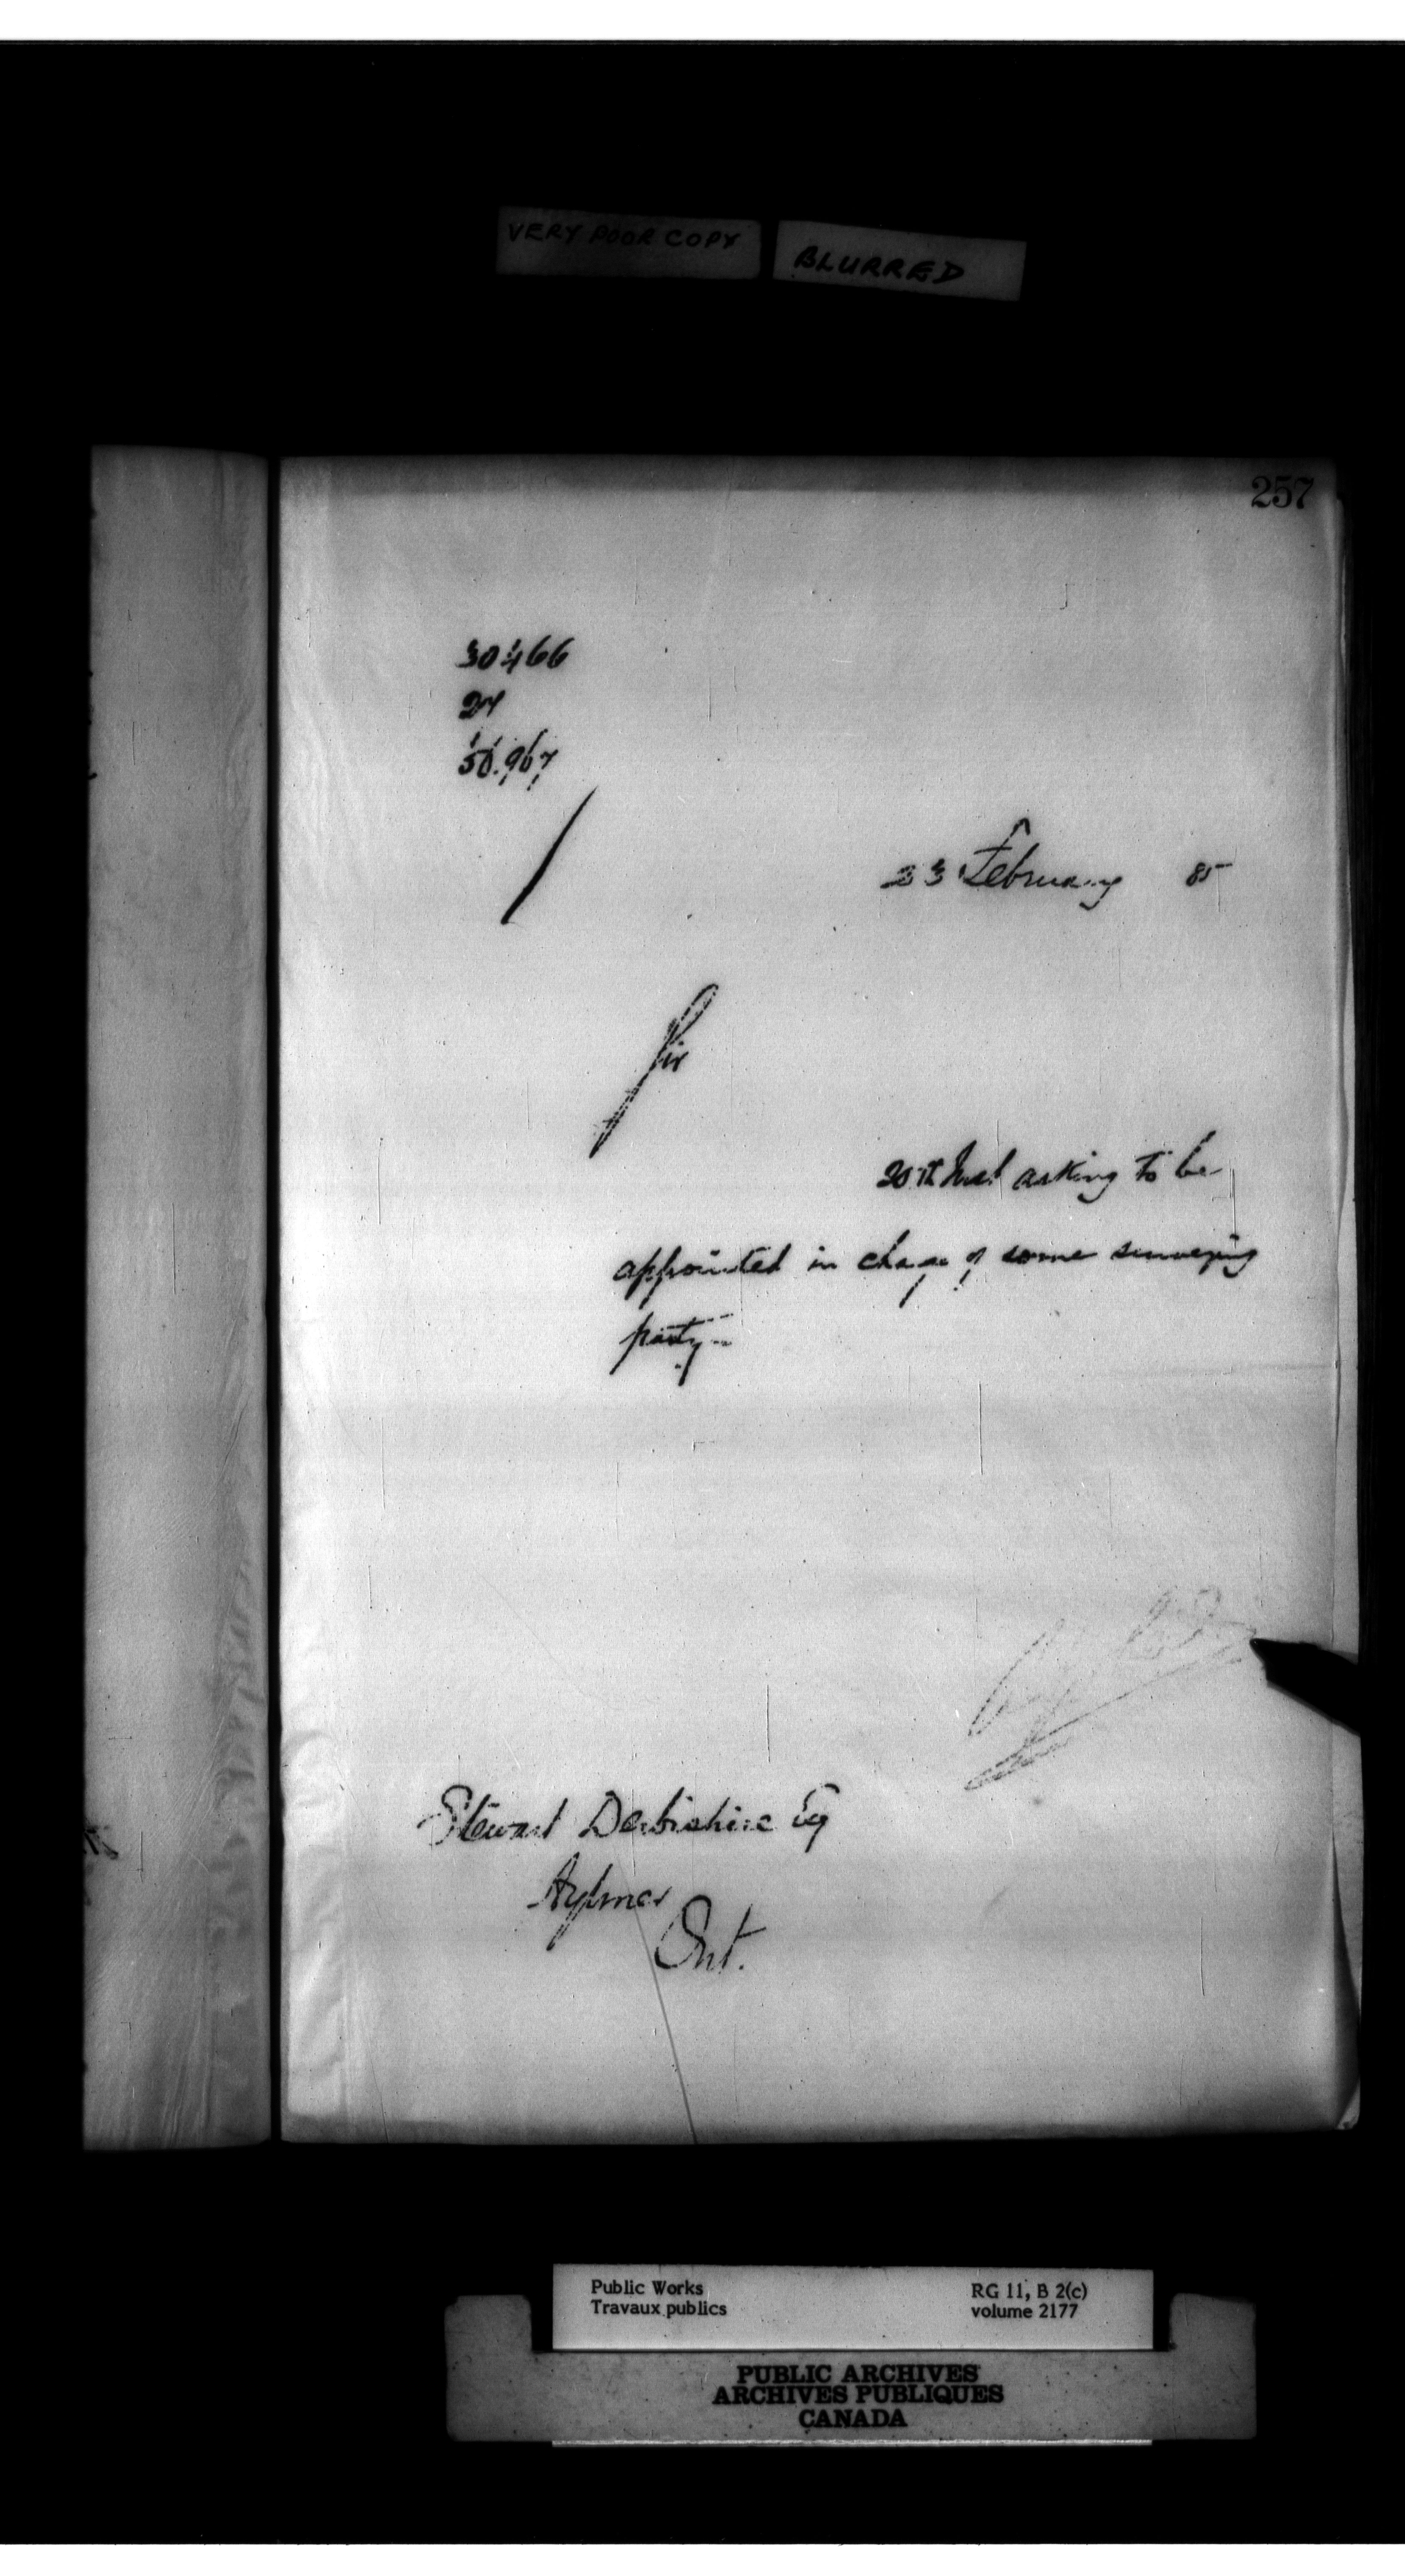 VERY POOR COPY
BLURRED
257
30466
24
50.967
23 February 85
Sir
20th Inst asking to be
appointed in charge of some surveying
party
Stewart Derbishire Esq
Aylmer
Ont.
Public Works
Travaux publics
RG 11, B 2(c)
volume 2177
PUBLIC ARCHIVES
ARCHIVES PUBLIQUES
CANADA